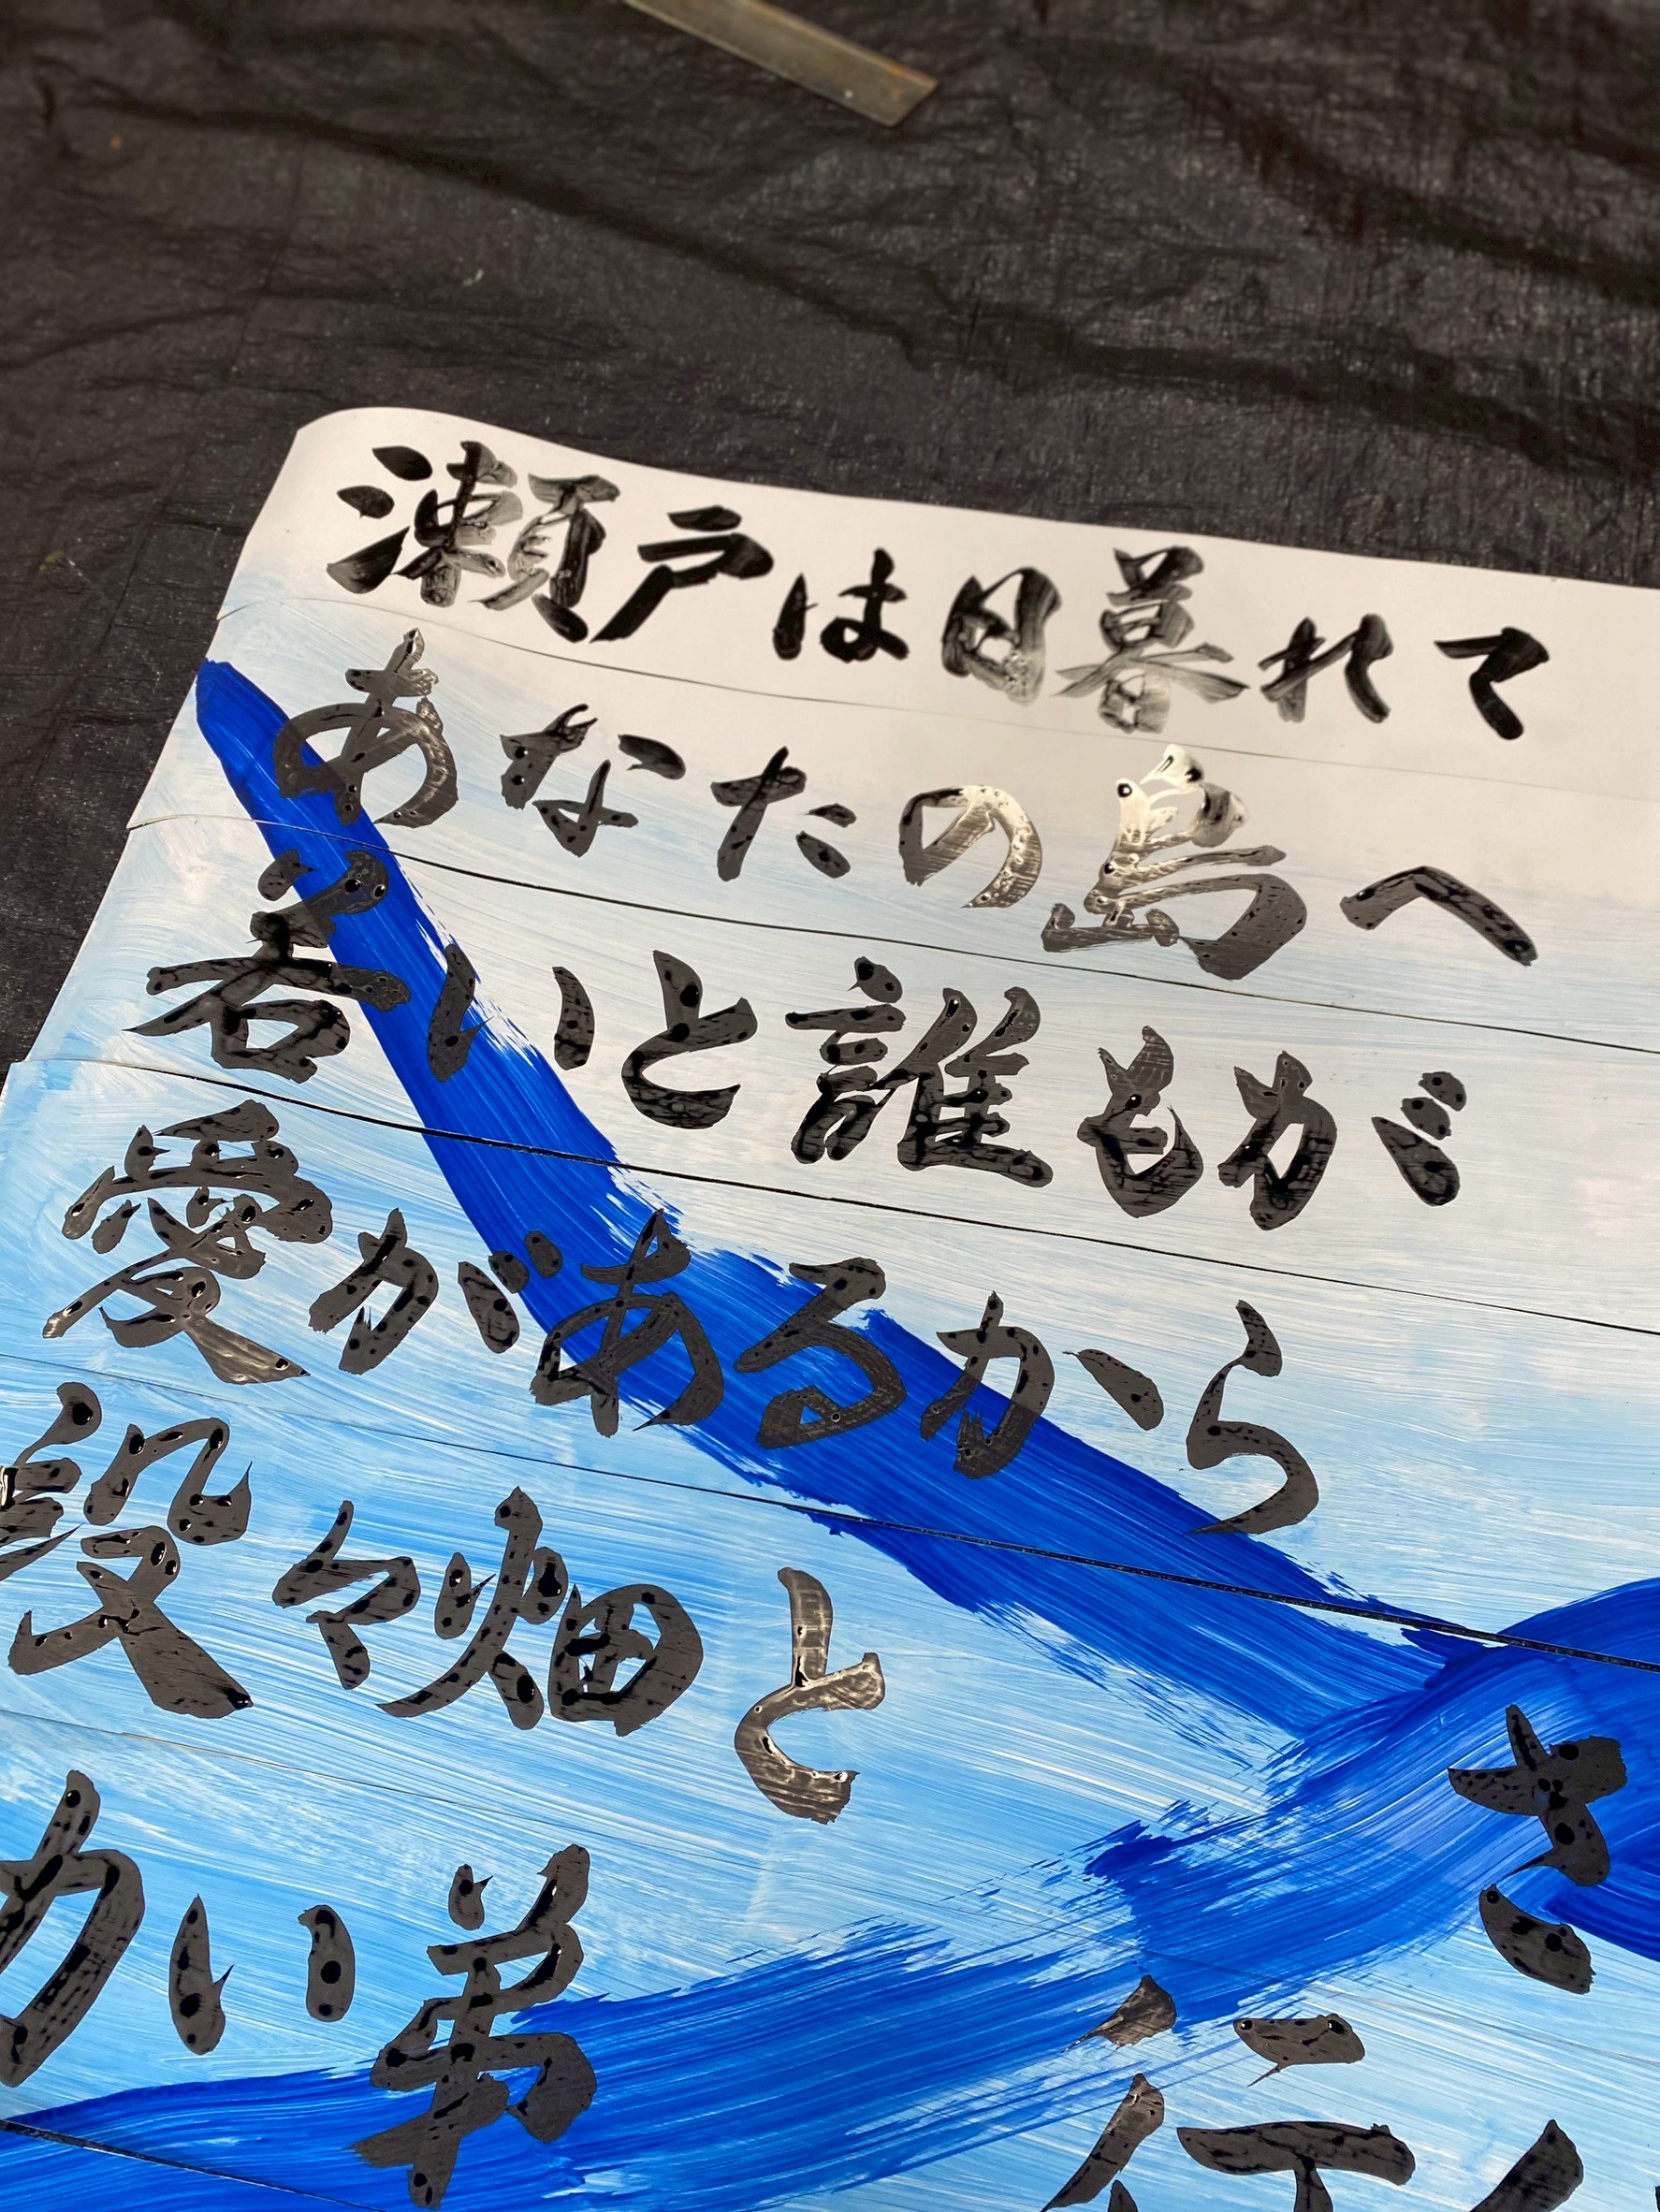 瀬戸は日暮れて
あなたの島へ
若いと誰もが
愛があるから
段々畑と さ
い弟 行